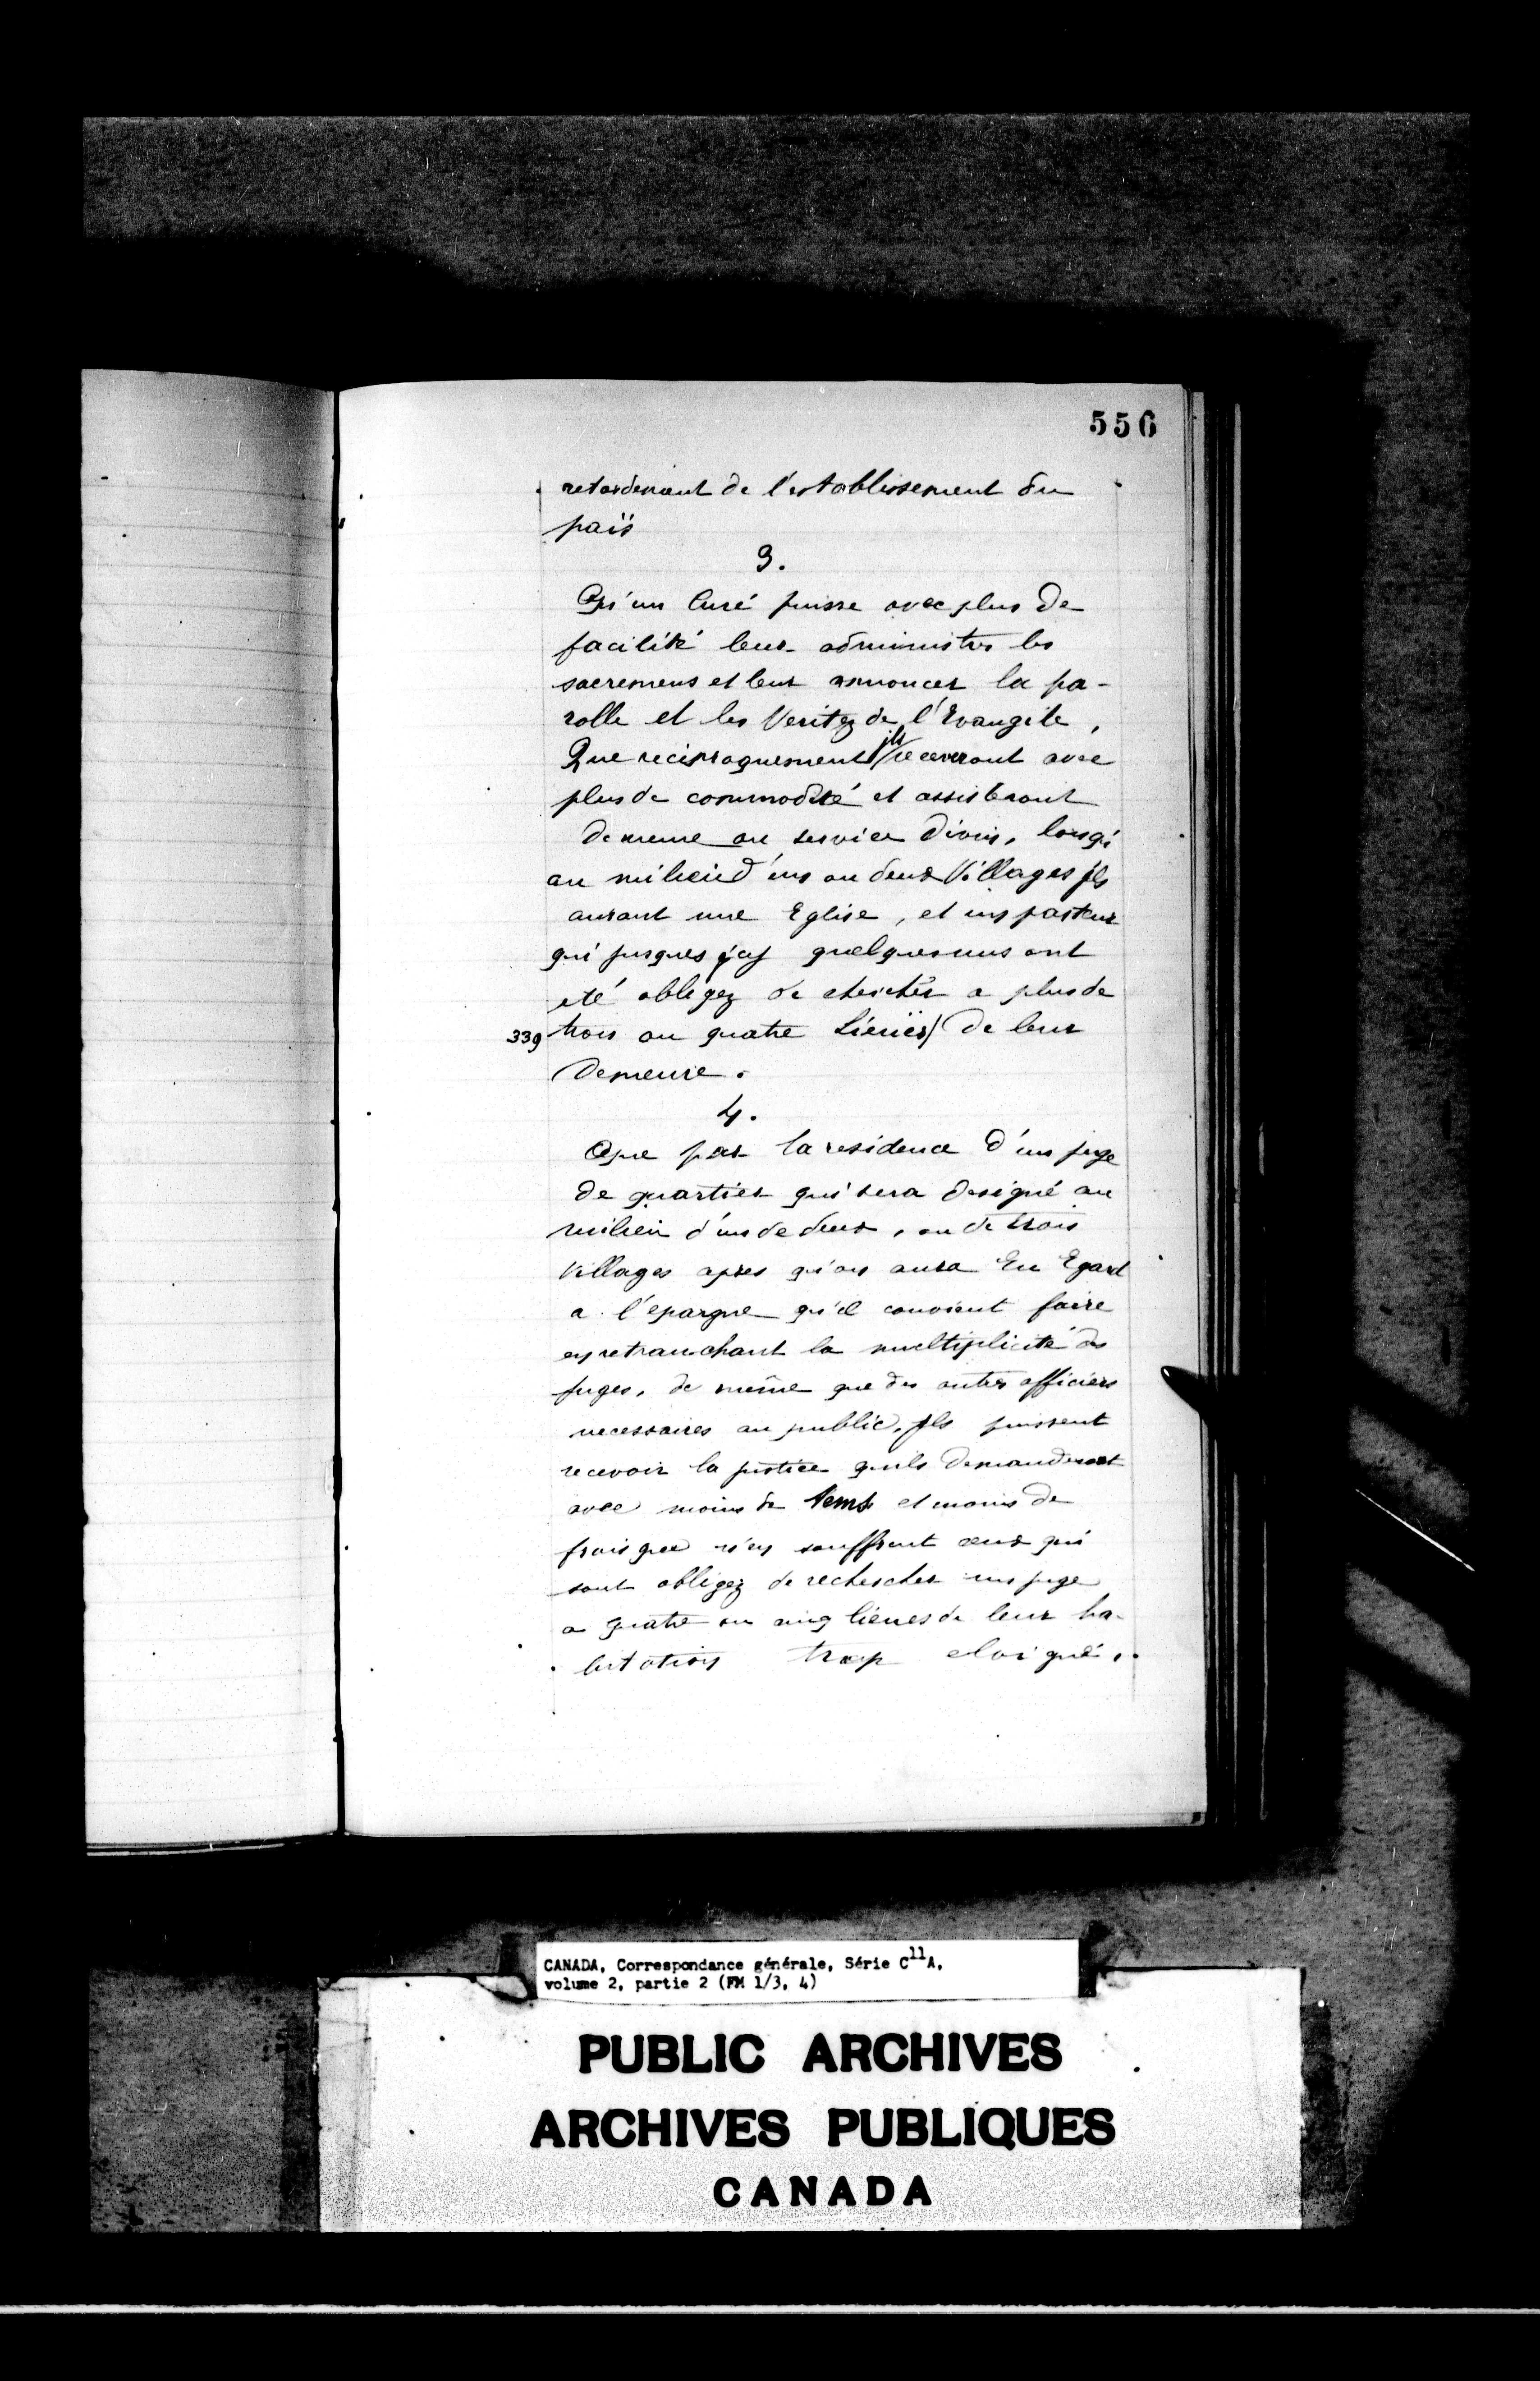 556
retardement de l'establissement du
païs
3.
Qu'un Curé puisse avec plus de
facilité leur administrer les
sacremens et leur annoncer la pa-
rolle et les Veritez de l'Evangile,
Que reciproquement ils recevront avec
plus de commodité et assisteront
de meme au service divin, lorsqu'
au milieu d'un ou deux Villages ils
auront une Eglise, et un pasteur
qui jusques icy quelques uns ont
eté obligez de chercher a plus de
339 trois ou quatre Liëues/ de leur
demeure.
4.
Que par la residence d'un juge
de quartier qui sera designé au
milieu d'un de deux, ou de trois
Villages apres qu'on aura Eu Egard
a l'epargne qu'il convient faire
en retranchant la multiplicité des
juges, de même que des autres officiers
necessaires au public, ils puissent
recevoir la justice qu'ils demanderont
avec moins de tems et moins de
frais que n'en souffrent ceux qui
sont obligez de rechercher un juge
a quatre ou cinq lieues de leur ha-
bitation trop eloigné,.
CANADA, Correspondance générale, Série C11A,
volume 2, partie 2 (FM 1/3, 4)
PUBLIC ARCHIVES
ARCHIVES PUBLIQUES
CANADA